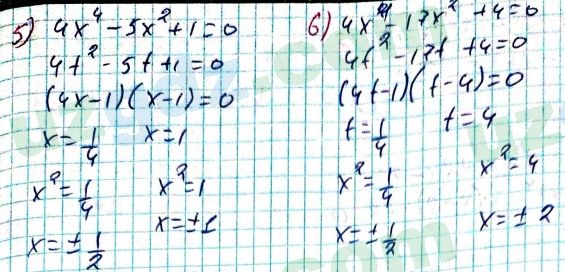 5) 4x⁴ - 5x² + 1 = 0
4t² - 5t + 1 = 0
(4x-1)(x-1) = 0
x = 1/4 x = 1
x² = 1/4 x² = 1
x = ± 1/2 x = ±1
6) 4x⁴ - 17x² + 4 = 0
4t² - 17t + 4 = 0
(4t-1)(t-4) = 0
t = 1/4 t = 4
x² = 1/4 x² = 4
x = ± 1/2 x = ± 2